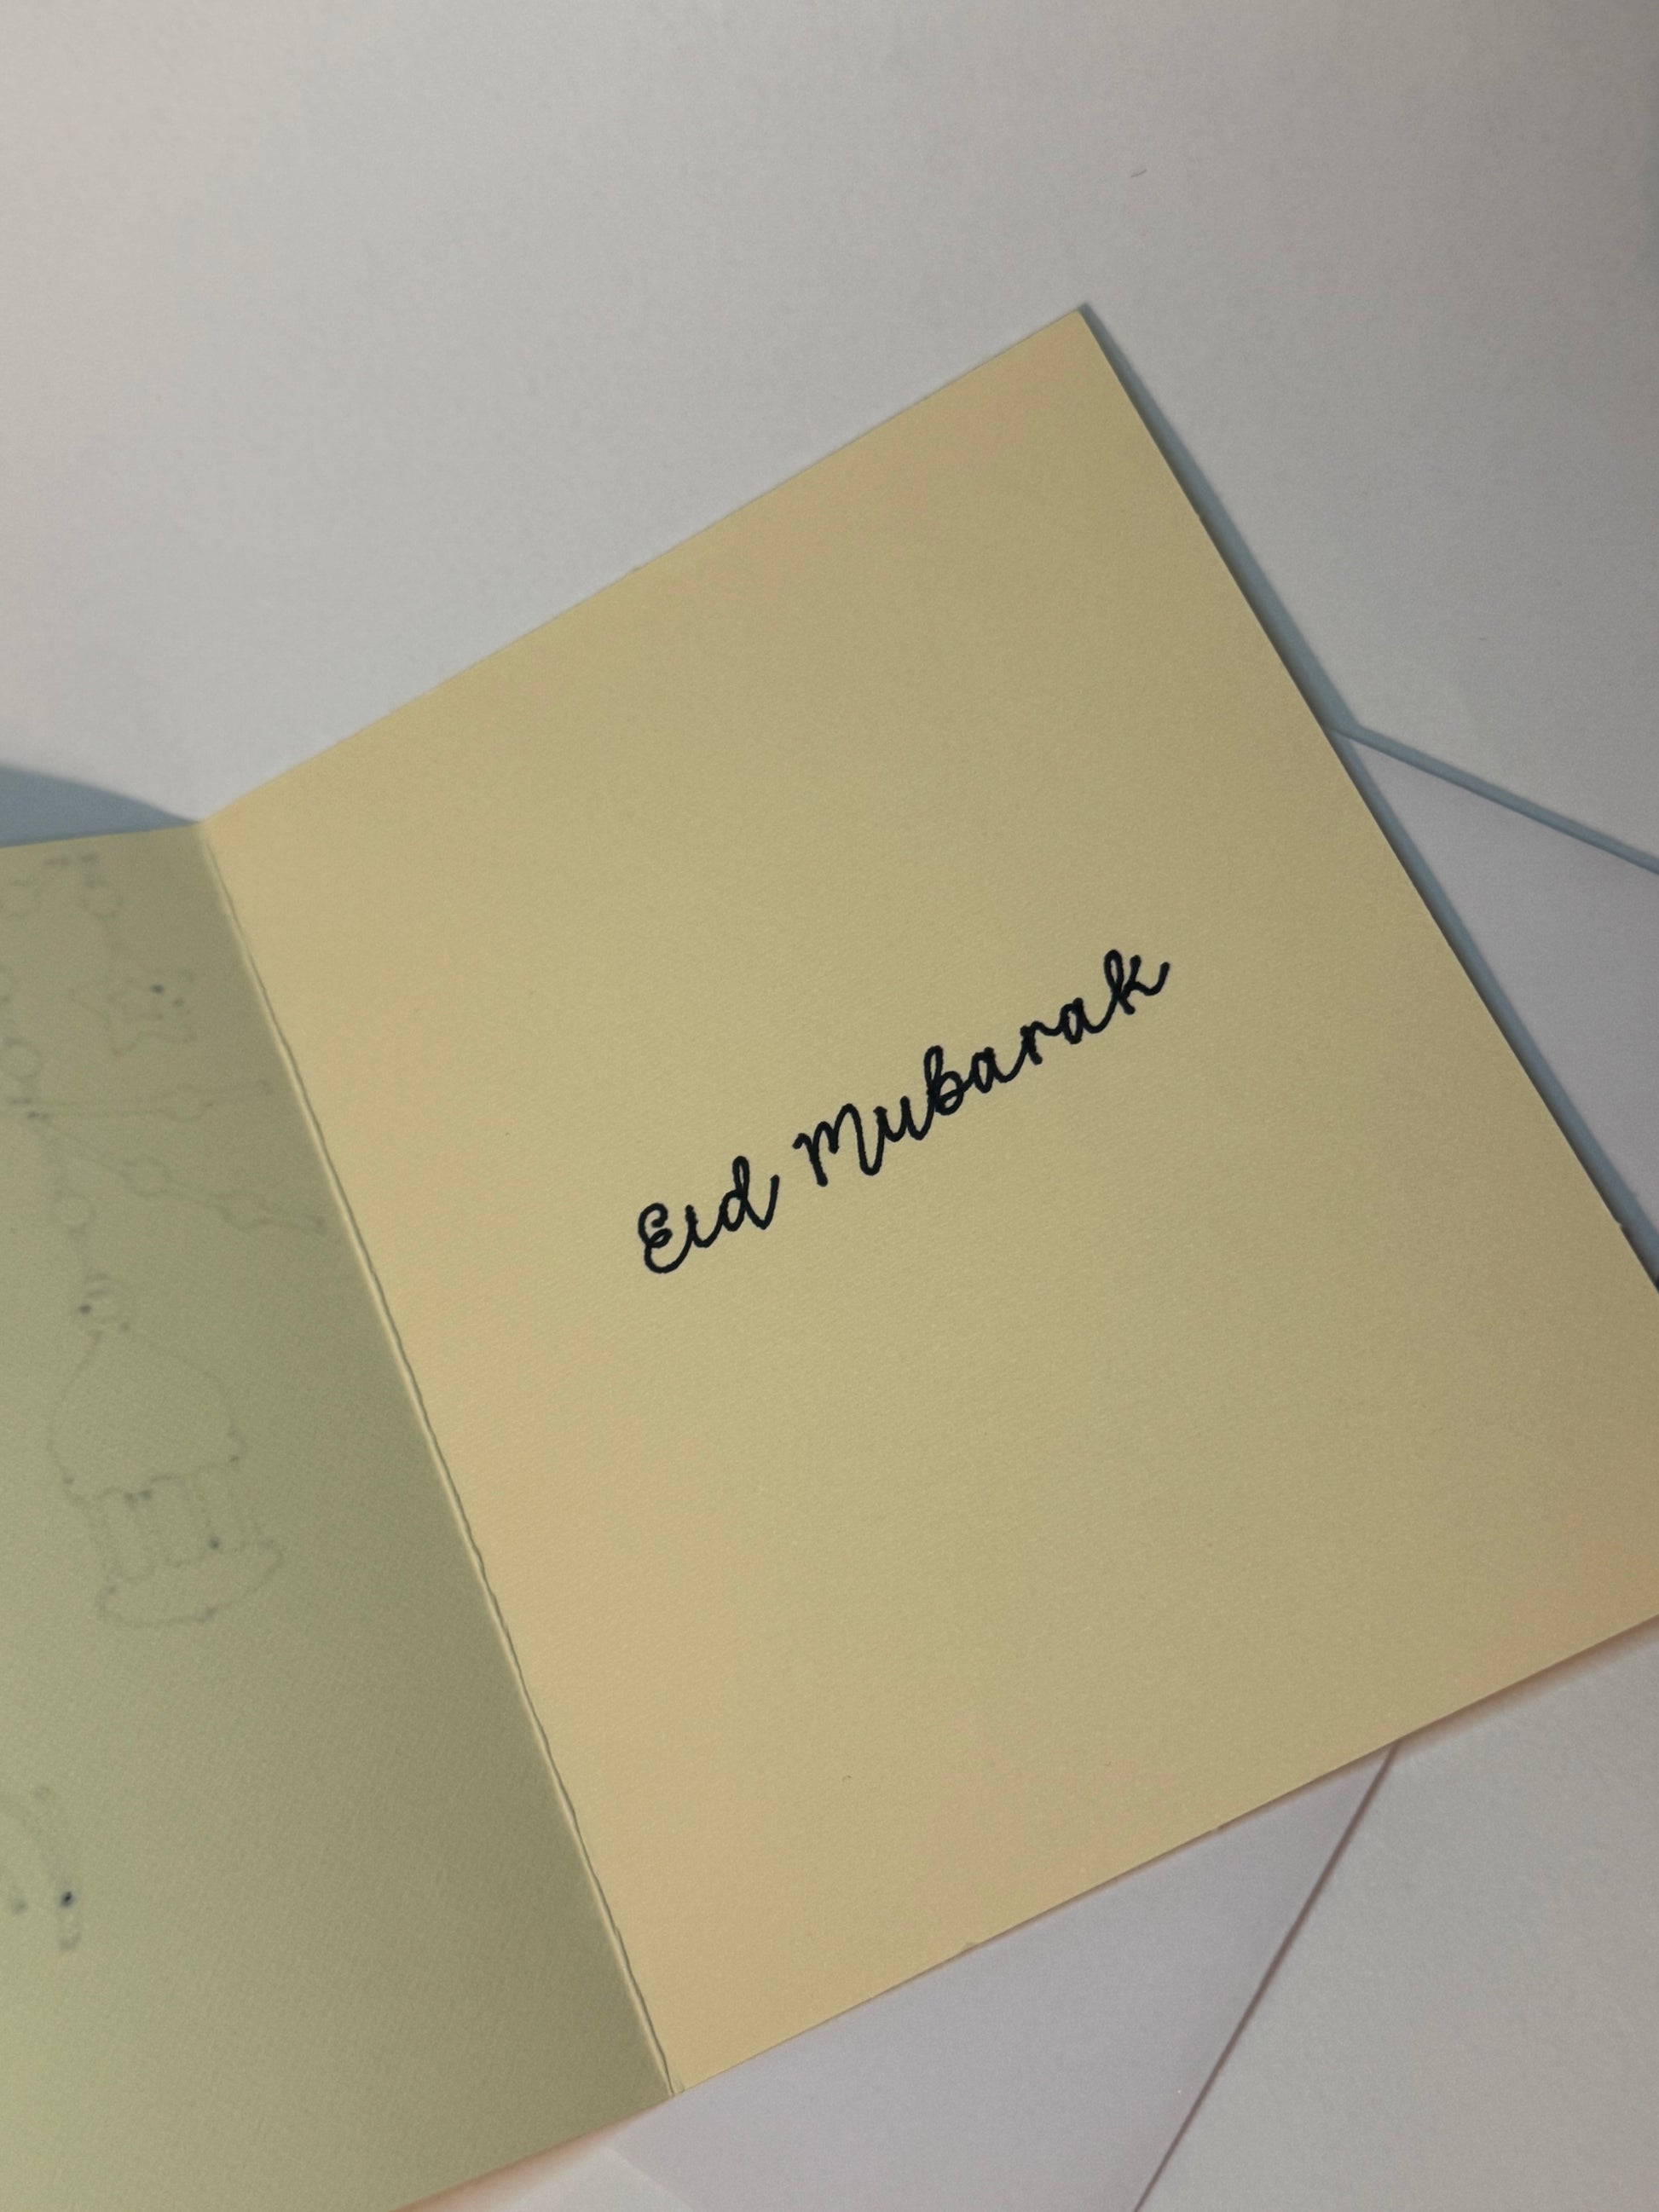 Eid Mubarak